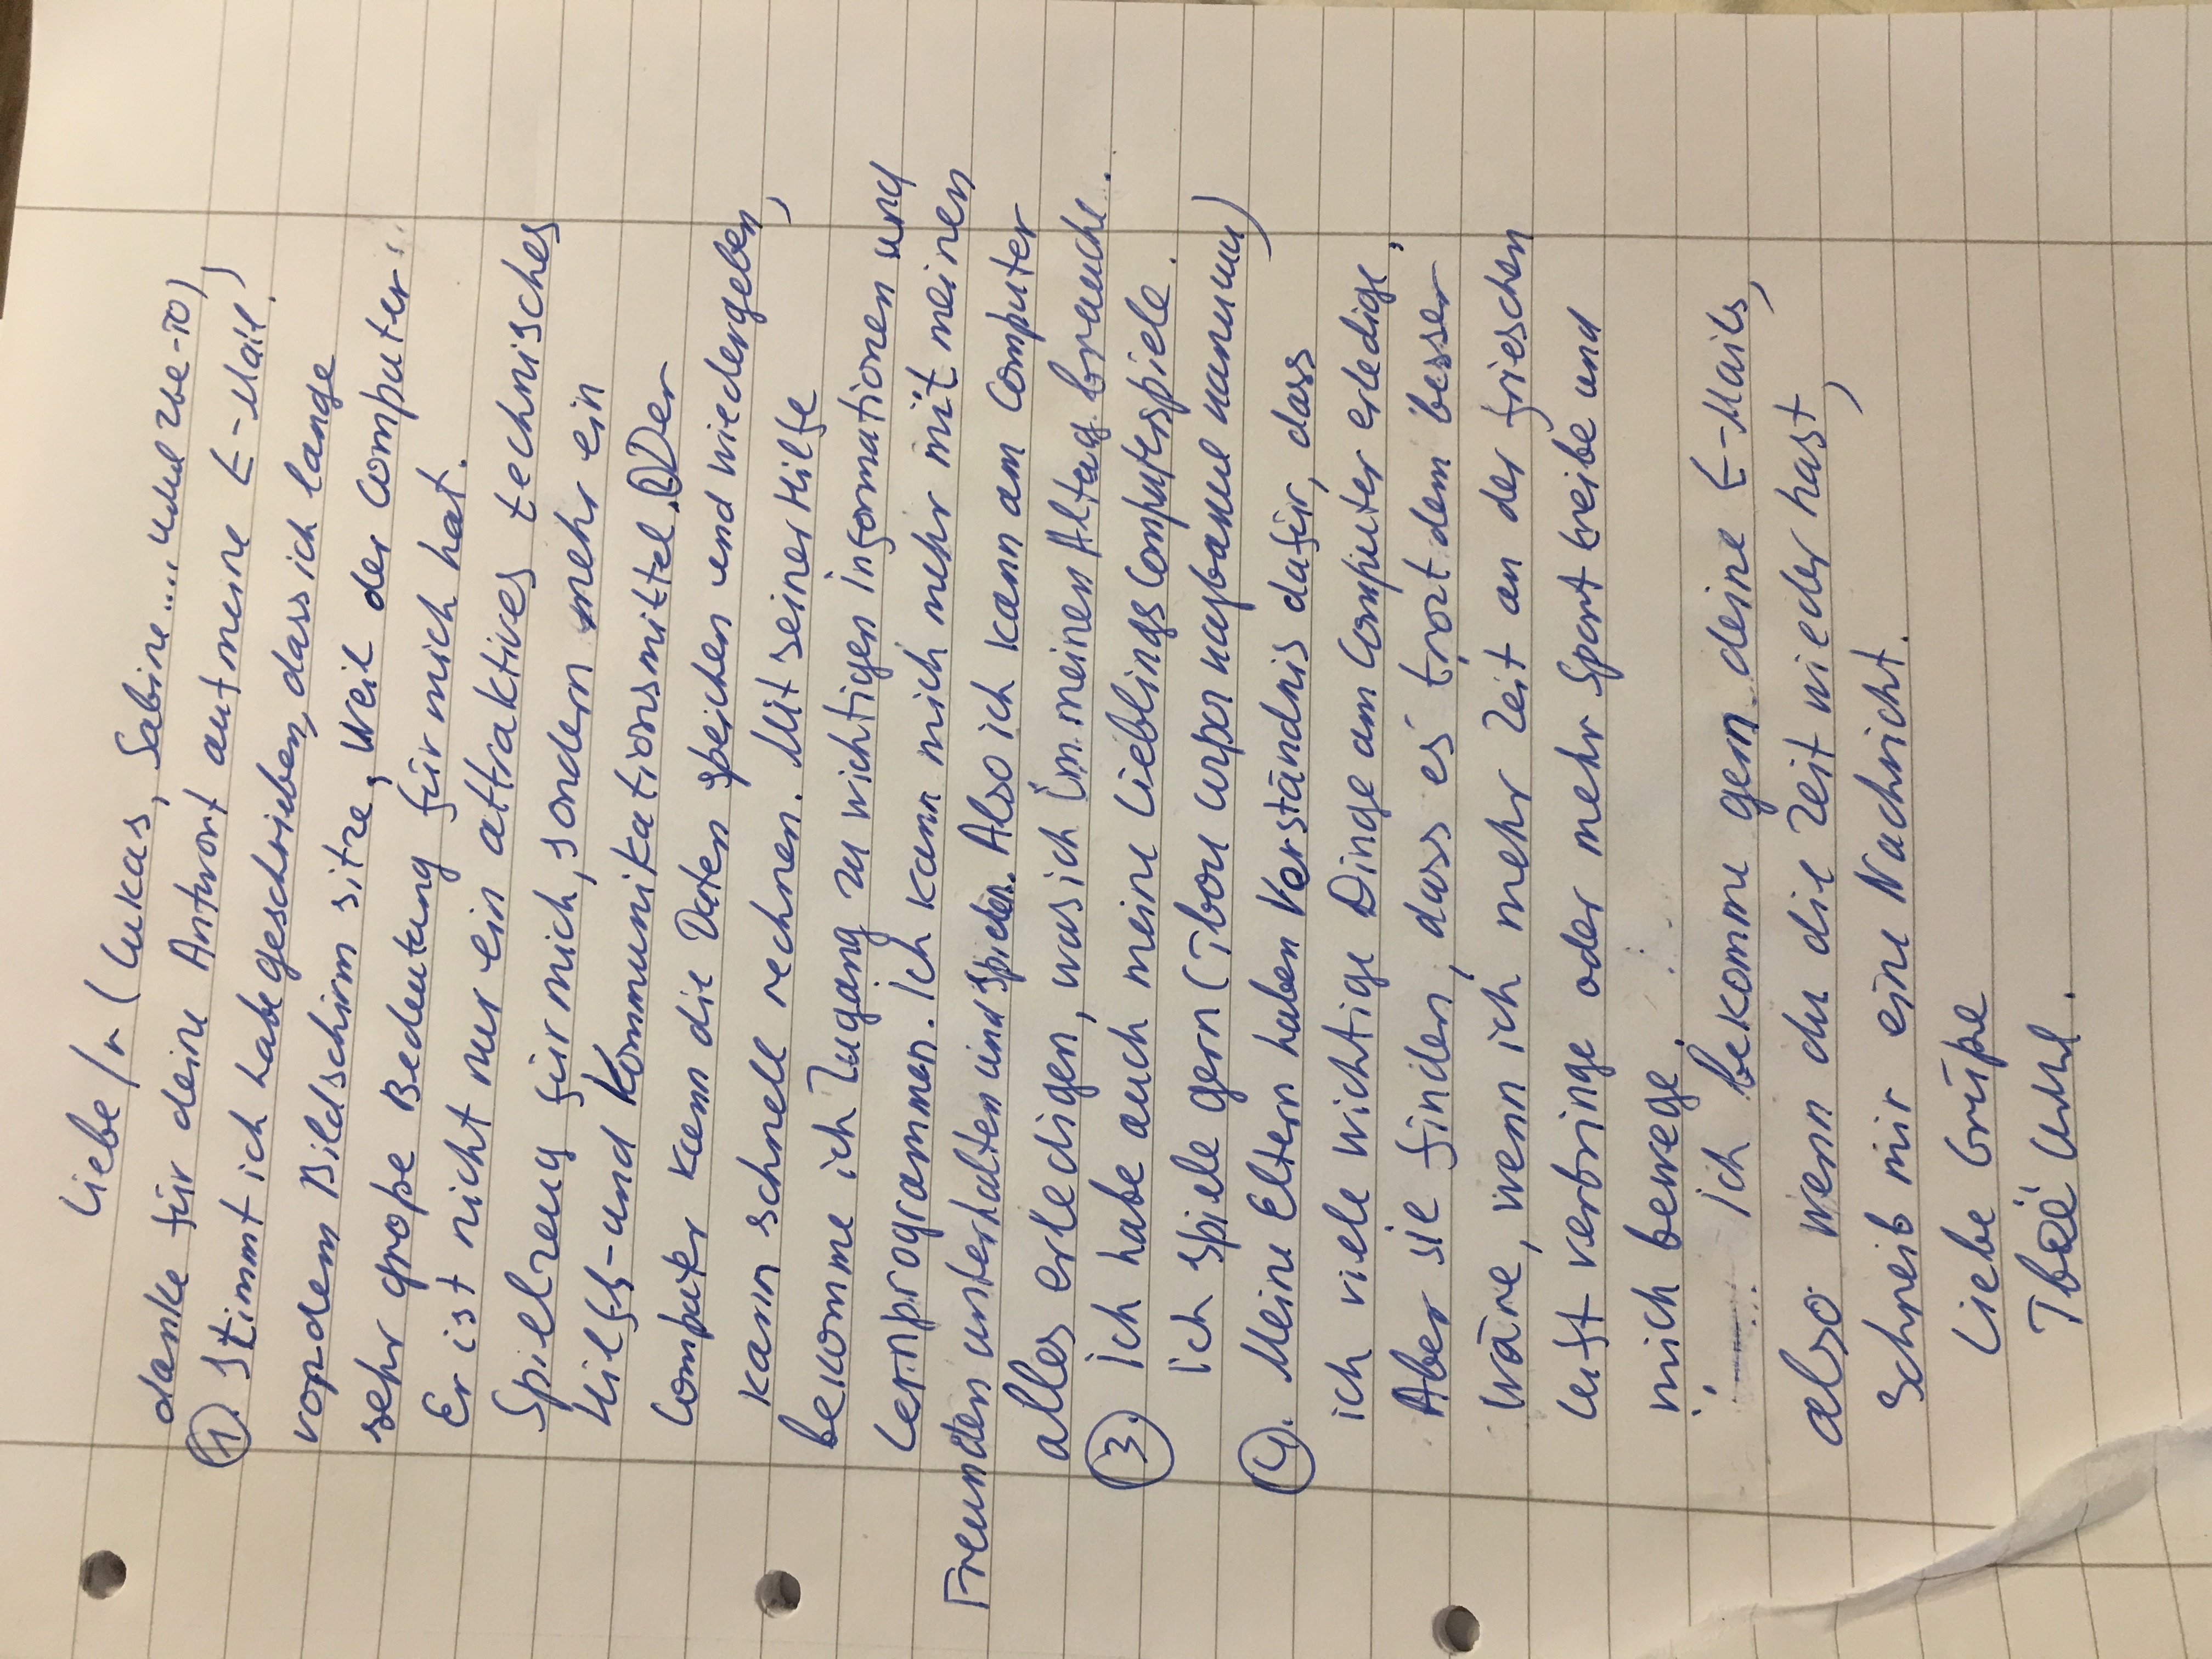 Liebe/r (Lukas, Sabine....
danke für deine Antwort auf meine E-Mail)
① Stimmt ich habe geschrieben, dass ich lange
vor dem Bildschirm sitze, weil der Computer
sehr große Bedeutung für mich hat.
Er ist nicht nur ein attraktives technisches
Spielzeug für mich, sondern mehr ein
Hilfs-und Kommunikationsmittel. ② Der
Computer kann die Daten speichen und wiedergeben,
kann schnell rechnen. Mit seiner Hilfe
bekomme ich Zugang zu wichtigen informationen und
Lernprogrammen. Ich kann mich mehr mit meinen
Freunden unterhalten und spielen. Also ich kann am Computer
alles erledigen, was ich im meinen Alltag brauche.
③ ich habe auch meine Lieblingscomputerspiele.
ich spiele gern (
④. Meine Eltern haben Verständnis dafür, dass
ich viele wichtige Dinge am Computer erledige,
Aber sie finden, dass es trozt dem besser
wäre, wenn ich mehr Zeit an der frieschen
Luft verbringe oder mehr Sport treibe und
mich bewege.
ich bekomme gern deine E-Mails,
also wenn du die Zeit wieder hast,
schreib mir eine Nachricht.
Liebe Grüße